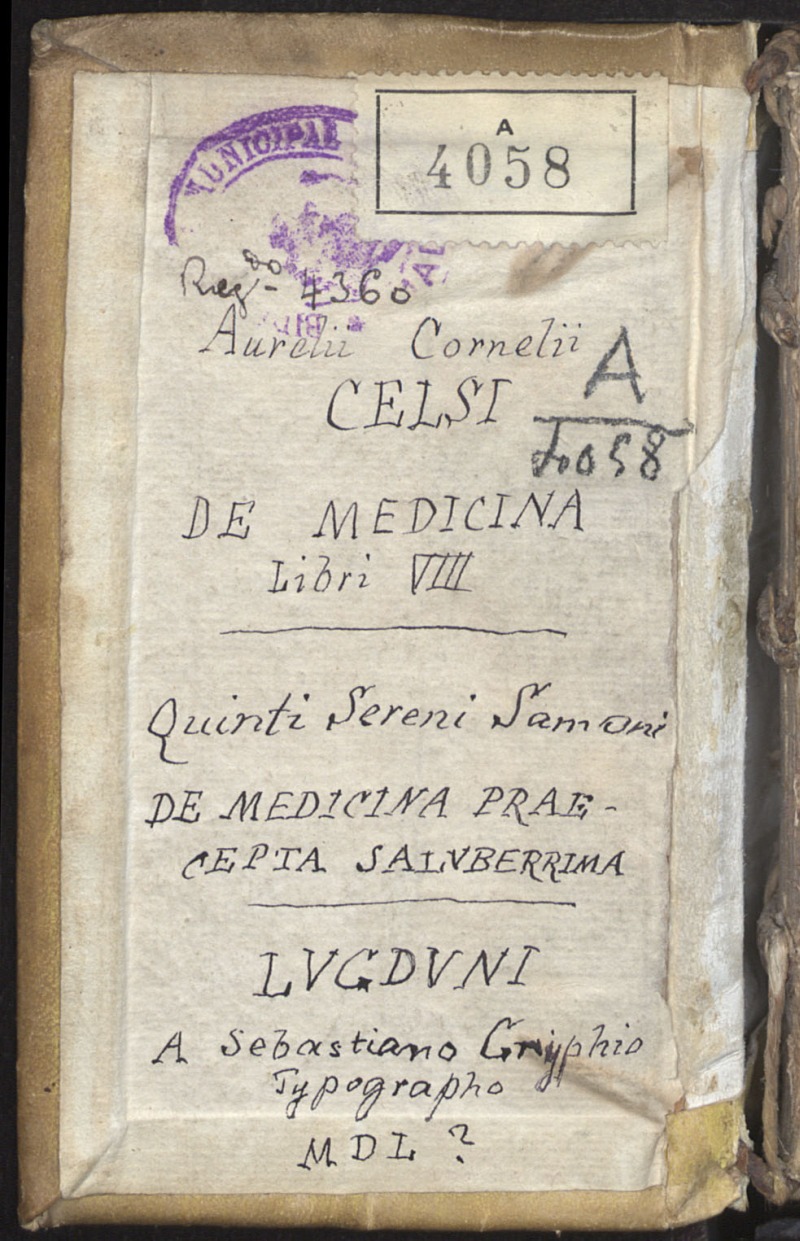 MUNICIPAL
A
4058
Reg.do 4360
Aurelii Cornelii
CELSI
A
4058
DE MEDICINA
Libri VIII
Quinti Sereni Samoni
DE MEDICINA PRAE-
CEPTA SALVBERRIMA
LVGDVNI
A Sebastiano Gryphio
Typographo
MDL?